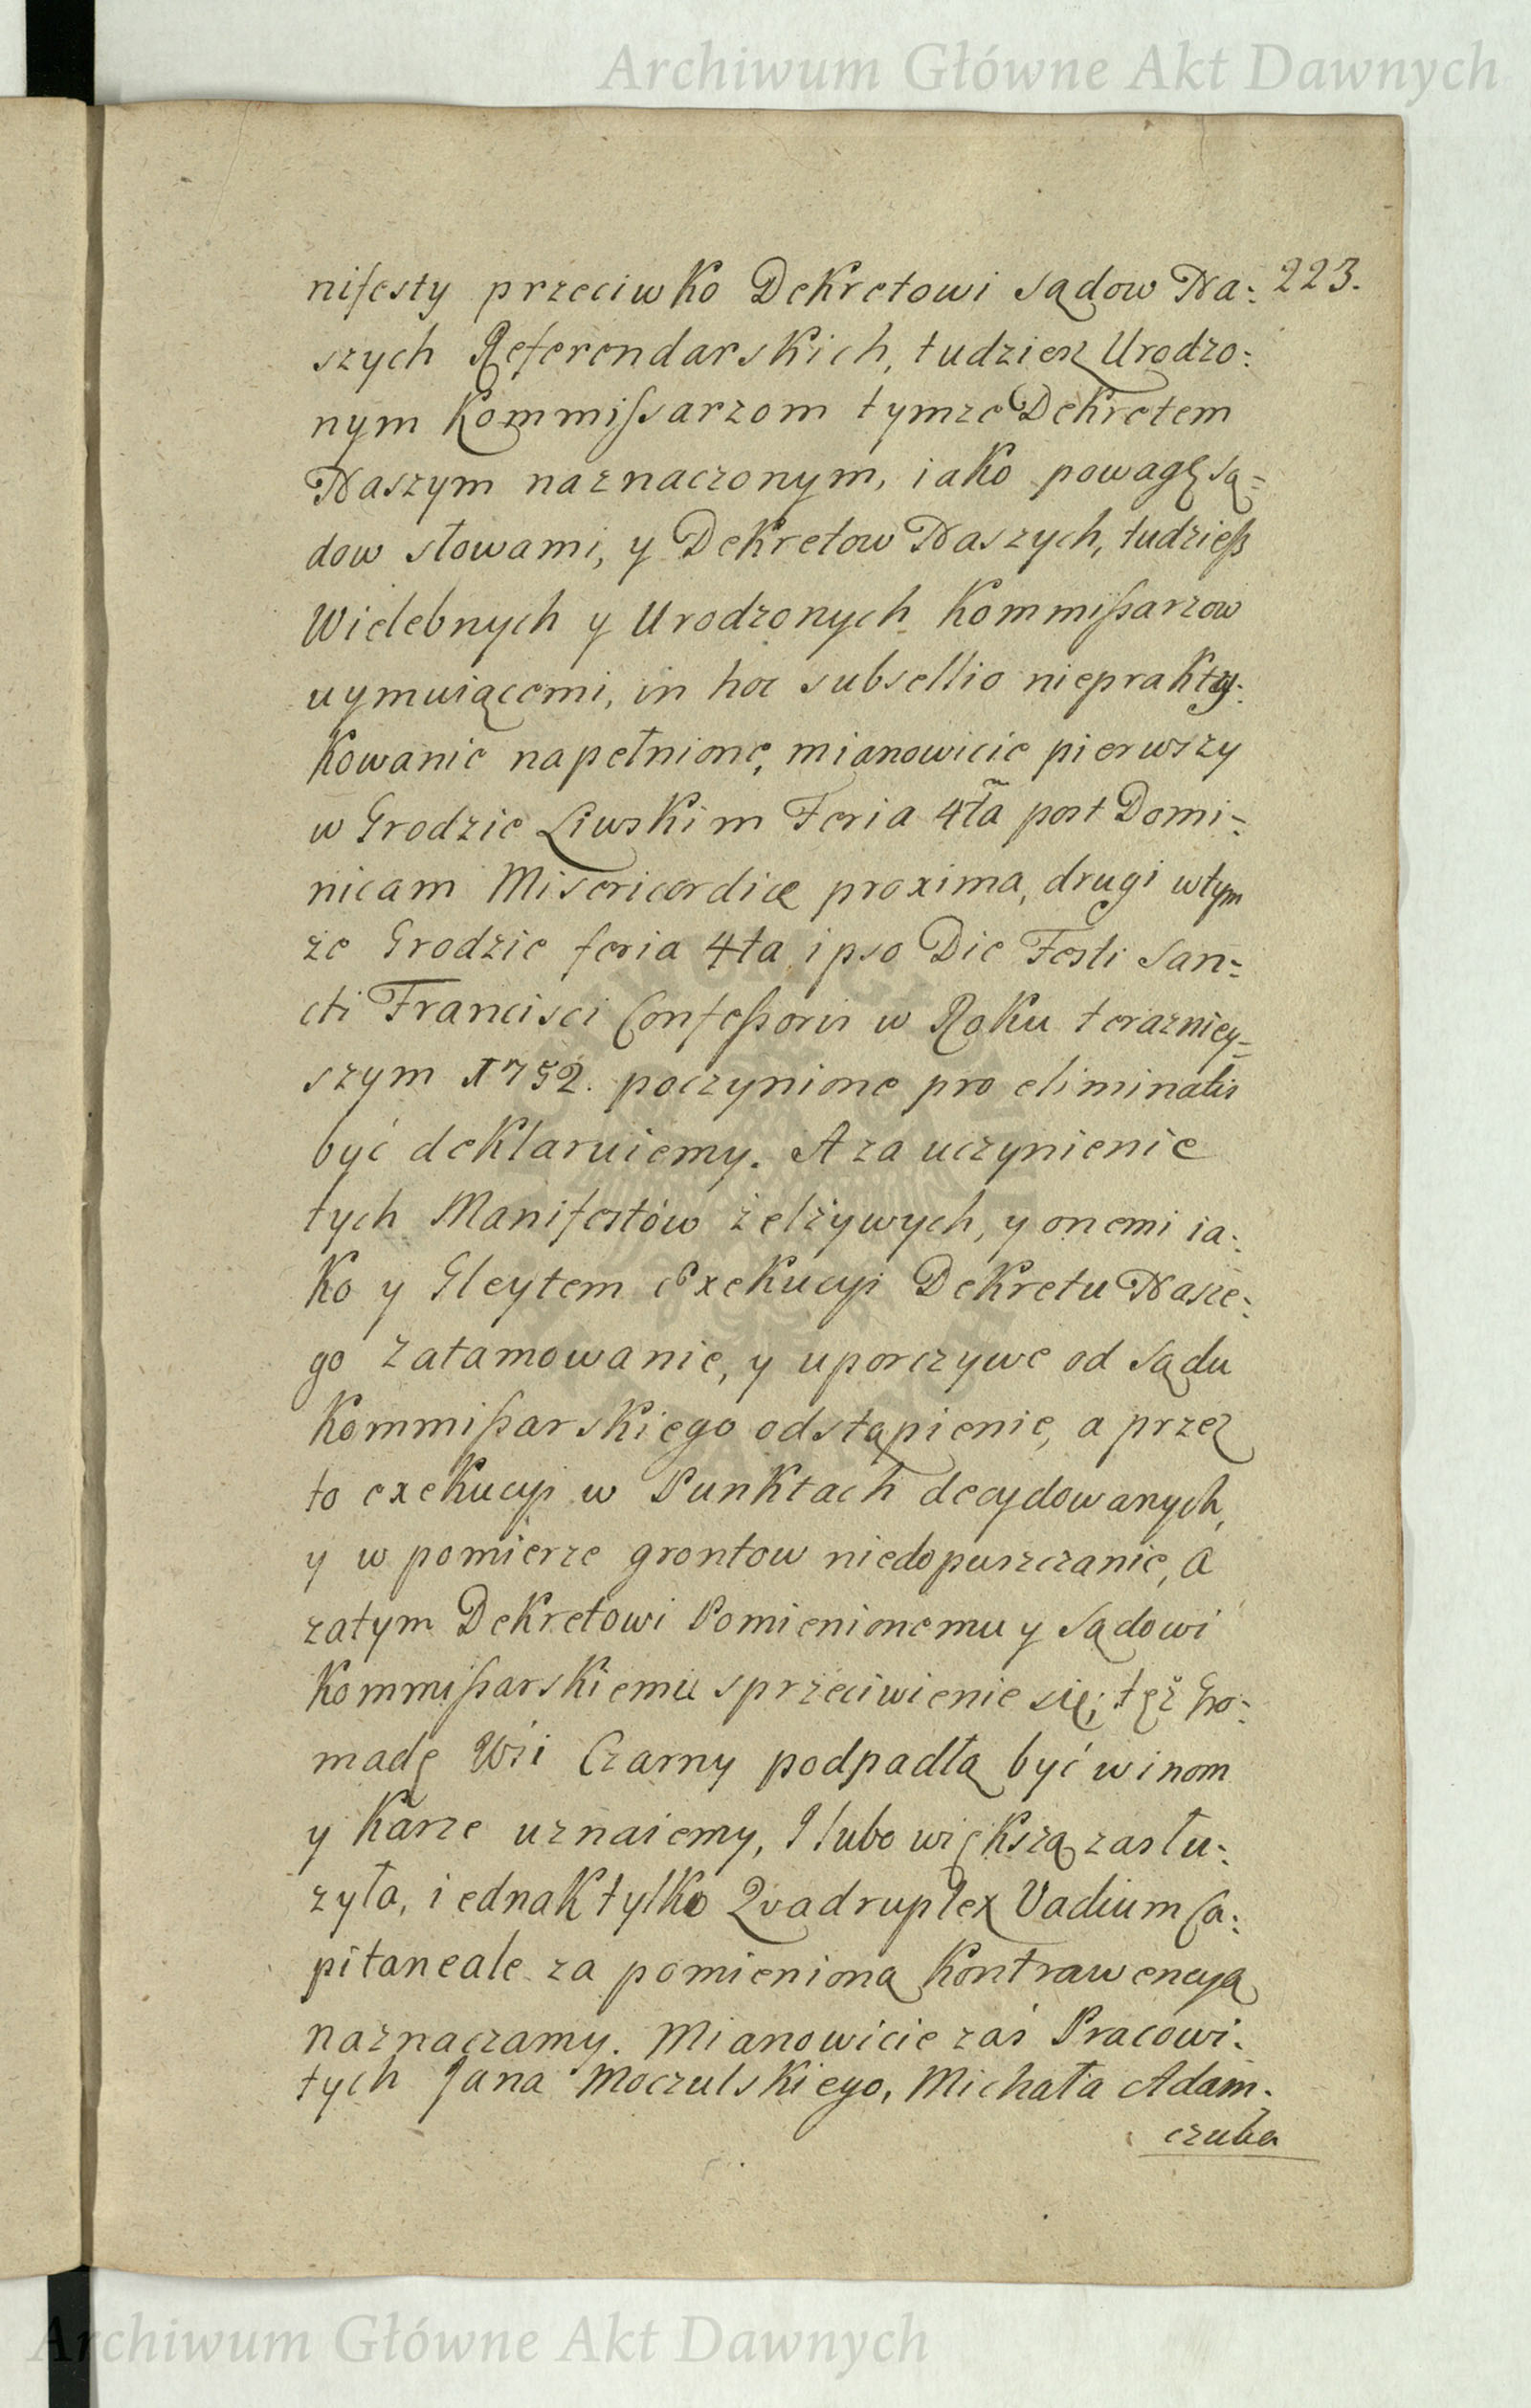 Archiwum Główne Akt Dawnych
223.
nifesty przeciwko Dekretowi sądow Na-
szych Referendarskich, tudziesz Urodzo-
nym Kommißarzom tymze Dekretem
Naszym naznaczonym, iako powagę są-
dow słowami, y Dekretow Naszych, tudzieß
Wielebnych y Urodzonych Kommißarzow
uymuiącemi, in hoc subsellio nieprakty-
kowanie napełnione, mianowicie pierwszy
w Grodzie Liwskim Feria 4ta post Domi-
nicam Misericordiæ proxima, drugi wtym
że Grodzie feria 4ta ipso Die Festi San-
cti Francisci Confeßoris w Roku terazniey-
szym 1752. poczynione pro eliminatis
być deklaruiemy. A za uczynienie
tych Manifestów zelżywych, y onemi ia-
ko y Gleytem Exekucyi Dekretu Nasze-
go zatamowanie, y uporczywe od sądu
Kommißarskiego odstąpienie, a przez
to exekucyi w Punktach decydowanych,
y w pomierze grontow niedopuszczanie, a
zatym Dekretowi Pomienionemu y Sądowi
Kommißarskiemu sprzeciwienie się; też Gro-
madę Wsi Czarny podpadłą być winom
y karze uznaiemy, I lubo większą zasłu-
zyła, iednak tylko Quadruplex Vadium Ca-
pitaneale za pomienioną kontrawencyą
naznaczamy. Mianowicie zaś Pracowi-
tych Jana Moczulskiego, Michała Adam-
czuka
Archiwum Główne Akt Dawnych